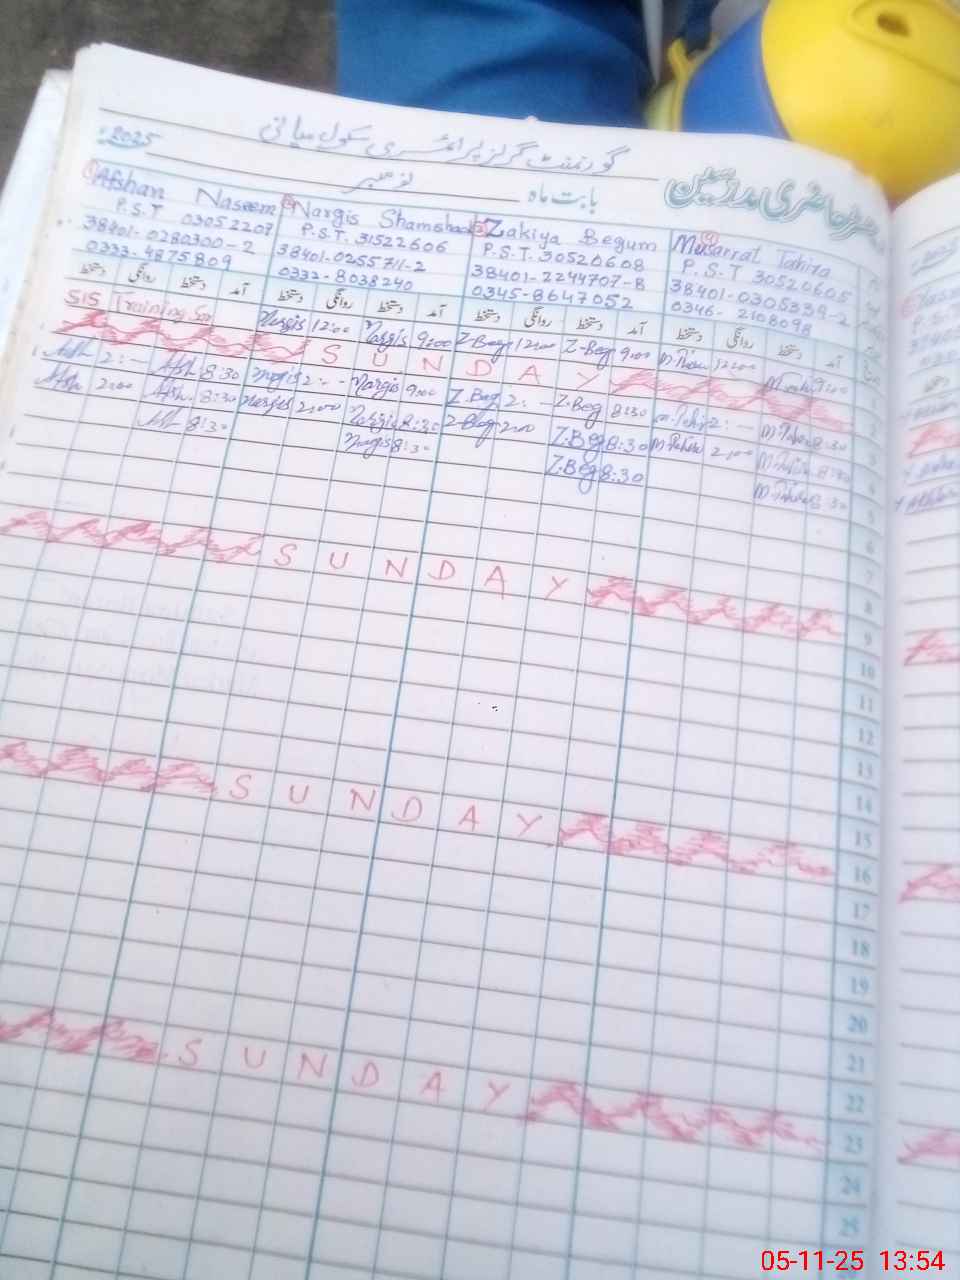 گورنمنٹ گرلز پرائمری سکول میانی
رجسٹر حاضری مدرسین
بابت ماہ نومبر 2025
1 Afshan Naseem
P.S.T 03052207
38401-0280300-2
0333-4875809
Nargis Shamshad
P.S.T. 31522606
38401-0255711-2
0332-8038240
3 Zakiya Begum
P.S.T. 30520608
38401-2244707-8
0345-8647052
4 Musarrat Tahira
P.S.T 30520605
38401-0305339-2
0346-2108098
آمد دستخط روانگی دستخط آمد دستخط روانگی دستخط آمد دستخط روانگی دستخط آمد دستخط روانگی دستخط
SIS Training Nargis 12:00 Nargis 9:00 Z.Beg 12:00 Z.Beg 9:00 12:00 9:00
SUNDAY
2:- 8:30 Nargis 2:- Nargis 9:00 Z.Beg 2:- Z.Beg 8:30 M.Tahira 2:- M.Tahira 8:30 3
2:00 8:30 Nargis 2:00 Nargis 8:30 Z.Beg 2:00 Z.Beg 8:30 M.Tahira 2:00 M.Tahira 8:30 4
8:30 Nargis 8:30 Z.Beg 8:30 M.Tahira 8:30 5
6
7
8
SUNDAY 9
10
11
12
13
14
15
SUNDAY 16
17
18
19
20
21
22
SUNDAY 23
24
25
05-11-25 13:54